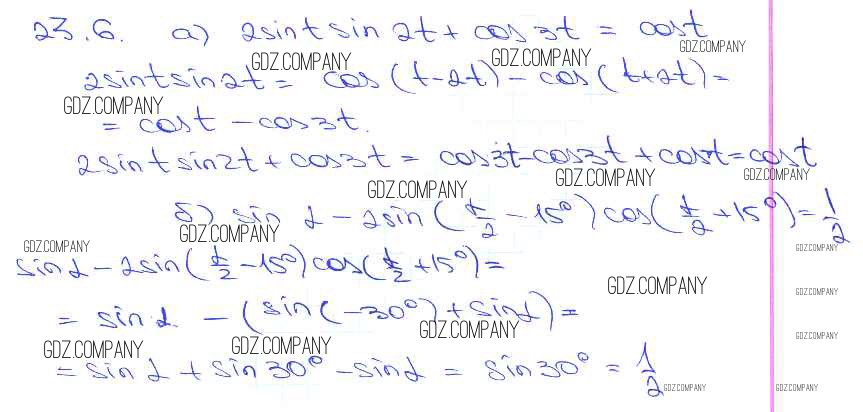 23.6. а) 2sint sin 2t + cos 3t = cost
GDZ.COMPANY GDZ.COMPANY GDZ.COMPANY
2sint sin2t = cos (t-2t) - cos (t+2t) =
GDZ.COMPANY
= cost - cos3t.
2sint sin2t + cos3t = cos3t - cos3t + cost = cost
GDZ.COMPANY GDZ.COMPANY GDZ.COMPANY
б) sin α - 2sin (α/2 - 15°) cos (α/2 + 15°) = 1/2
GDZ.COMPANY GDZ.COMPANY GDZ.COMPANY
sin α - 2sin (α/2 - 15°) cos (α/2 + 15°) =
GDZ.COMPANY GDZ.COMPANY
= sin α - (sin (-30°) + sin α) =
GDZ.COMPANY GDZ.COMPANY GDZ.COMPANY GDZ.COMPANY
= sin α + sin 30° - sin α = sin 30° = 1/2
GDZ.COMPANY GDZ.COMPANY